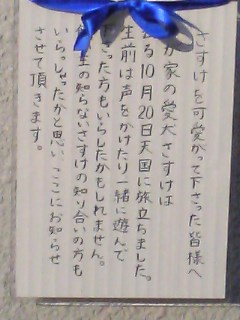 さすけを可愛がって下さった皆様へ
が家の愛犬さすけは
る10月20日天国に旅立ちました。
生前は声をかけたり一緒に遊んで
さった方もいらしたかもしれません。
主の知らないさすけの知り合いの方も
いらっしゃったかと思い、ここにお知らせ
させて頂きます。